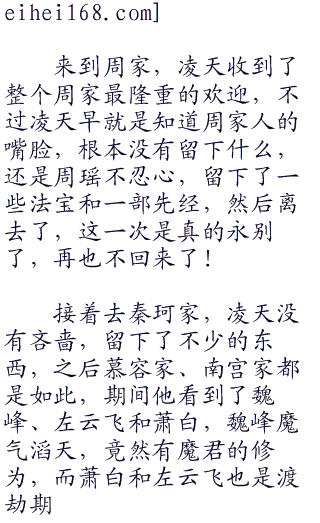 eihei168.com]
来到周家，凌天收到了
整个周家最隆重的欢迎，不
过凌天早就是知道周家人的
嘴脸，根本没有留下什么，
还是周瑶不忍心，留下了一
些法宝和一部先经，然后离
去了，这一次是真的永别
了，再也不回来了！
接着去秦珂家，凌天没
有吝啬，留下了不少的东
西，之后慕容家、南宫家都
是如此，期间他看到了魏
峰、左云飞和萧白，魏峰魔
气滔天，竟然有魔君的修
为，而萧白和左云飞也是渡
劫期